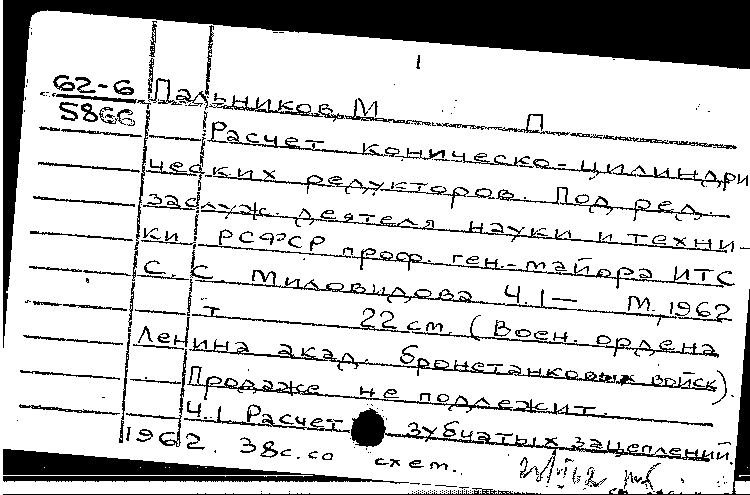 1
62-6 Пальников, М П
5866
Расчет коническо-цилиндри
ческих редукторов. Под ред.
заслуж. деятеля науки и техни-
ки РСФСР проф. ген.-майора ИТС
С. С. Миловидова Ч.1— М., 1962
т 22 см. (Воен. ордена
Ленина акад. бронетанковых войск).
Продаже не подлежит.
Ч.1 Расчет зубчатых зацеплений.
1962. 38 с. со схем.